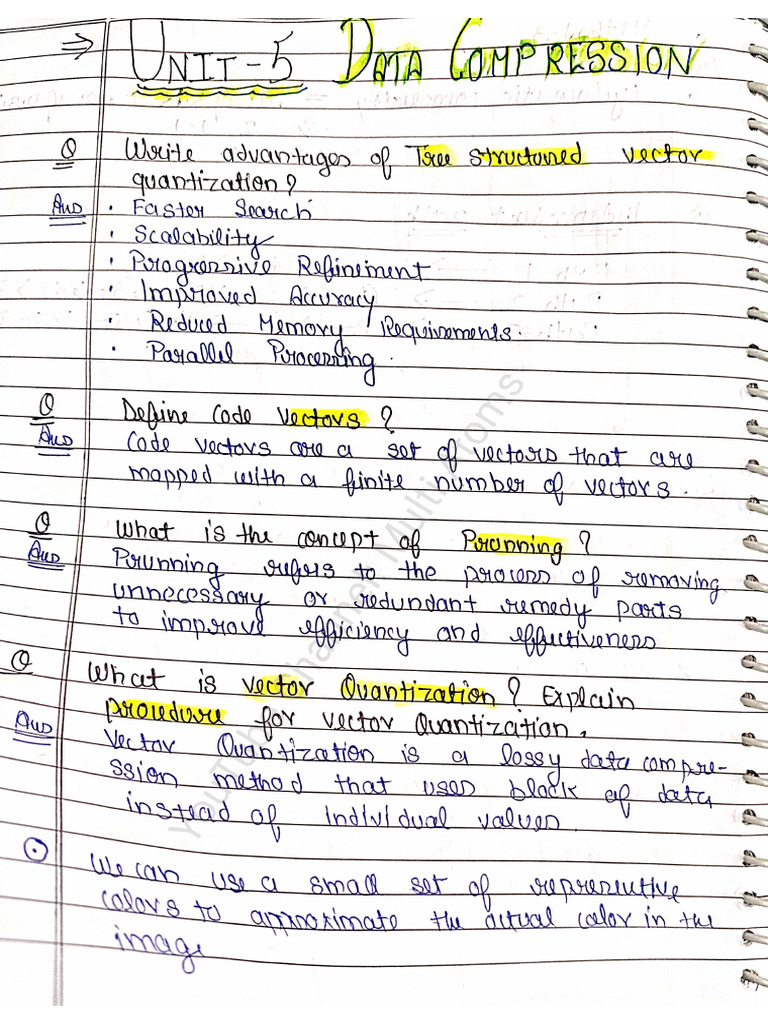 ⇒ UNIT-5 DATA COMPRESSION
Q Write advantages of Tree structured vector
quantization?
Ans • Faster Search
• Scalability
• Progressive Refinement
• Improved Accuracy
• Reduced Memory Requirements.
• Parallel Processing.
Q Define Code Vectors?
Ans Code vectors are a set of vectors that are
mapped with a finite number of vectors.
Q What is the concept of Prunning?
Ans Prunning refers to the process of removing
unnecessary or redundant remedy parts
to improve efficiency and effectiveness
Q What is vector Quantization? Explain
procedure for vector Quantization.
Ans Vector Quantization is a lossy data compre-
ssion method that uses block of data
instead of individual values.
We can use a small set of represeutive
colors to approximate the actual color in the
image
YouTube Channel Multi Atoms